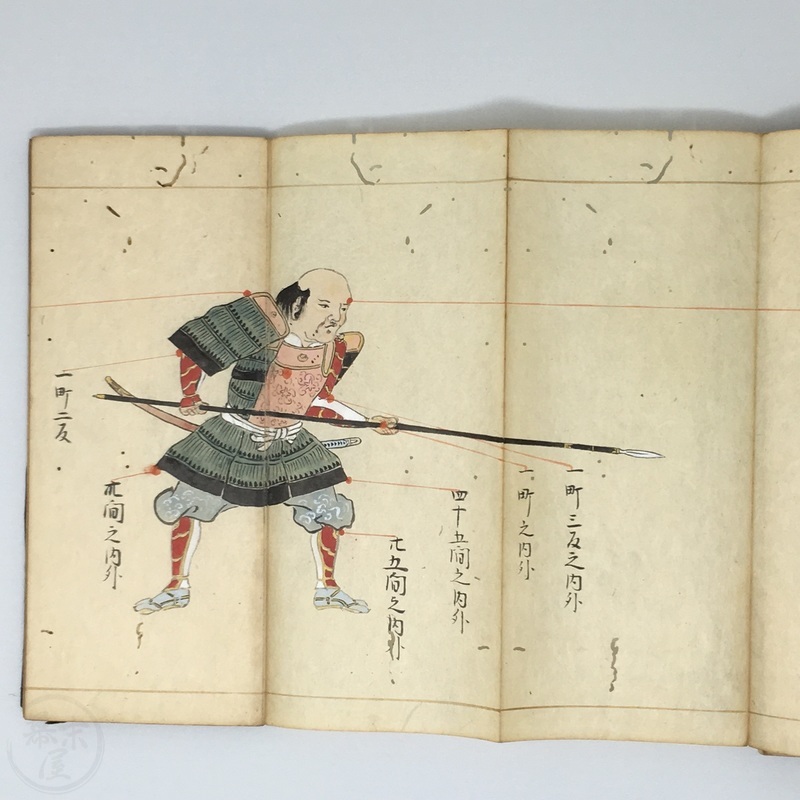 一町三反之内外
一町之内外
四十五間之内外
廿五間之内外
卅間之内外
一町二反